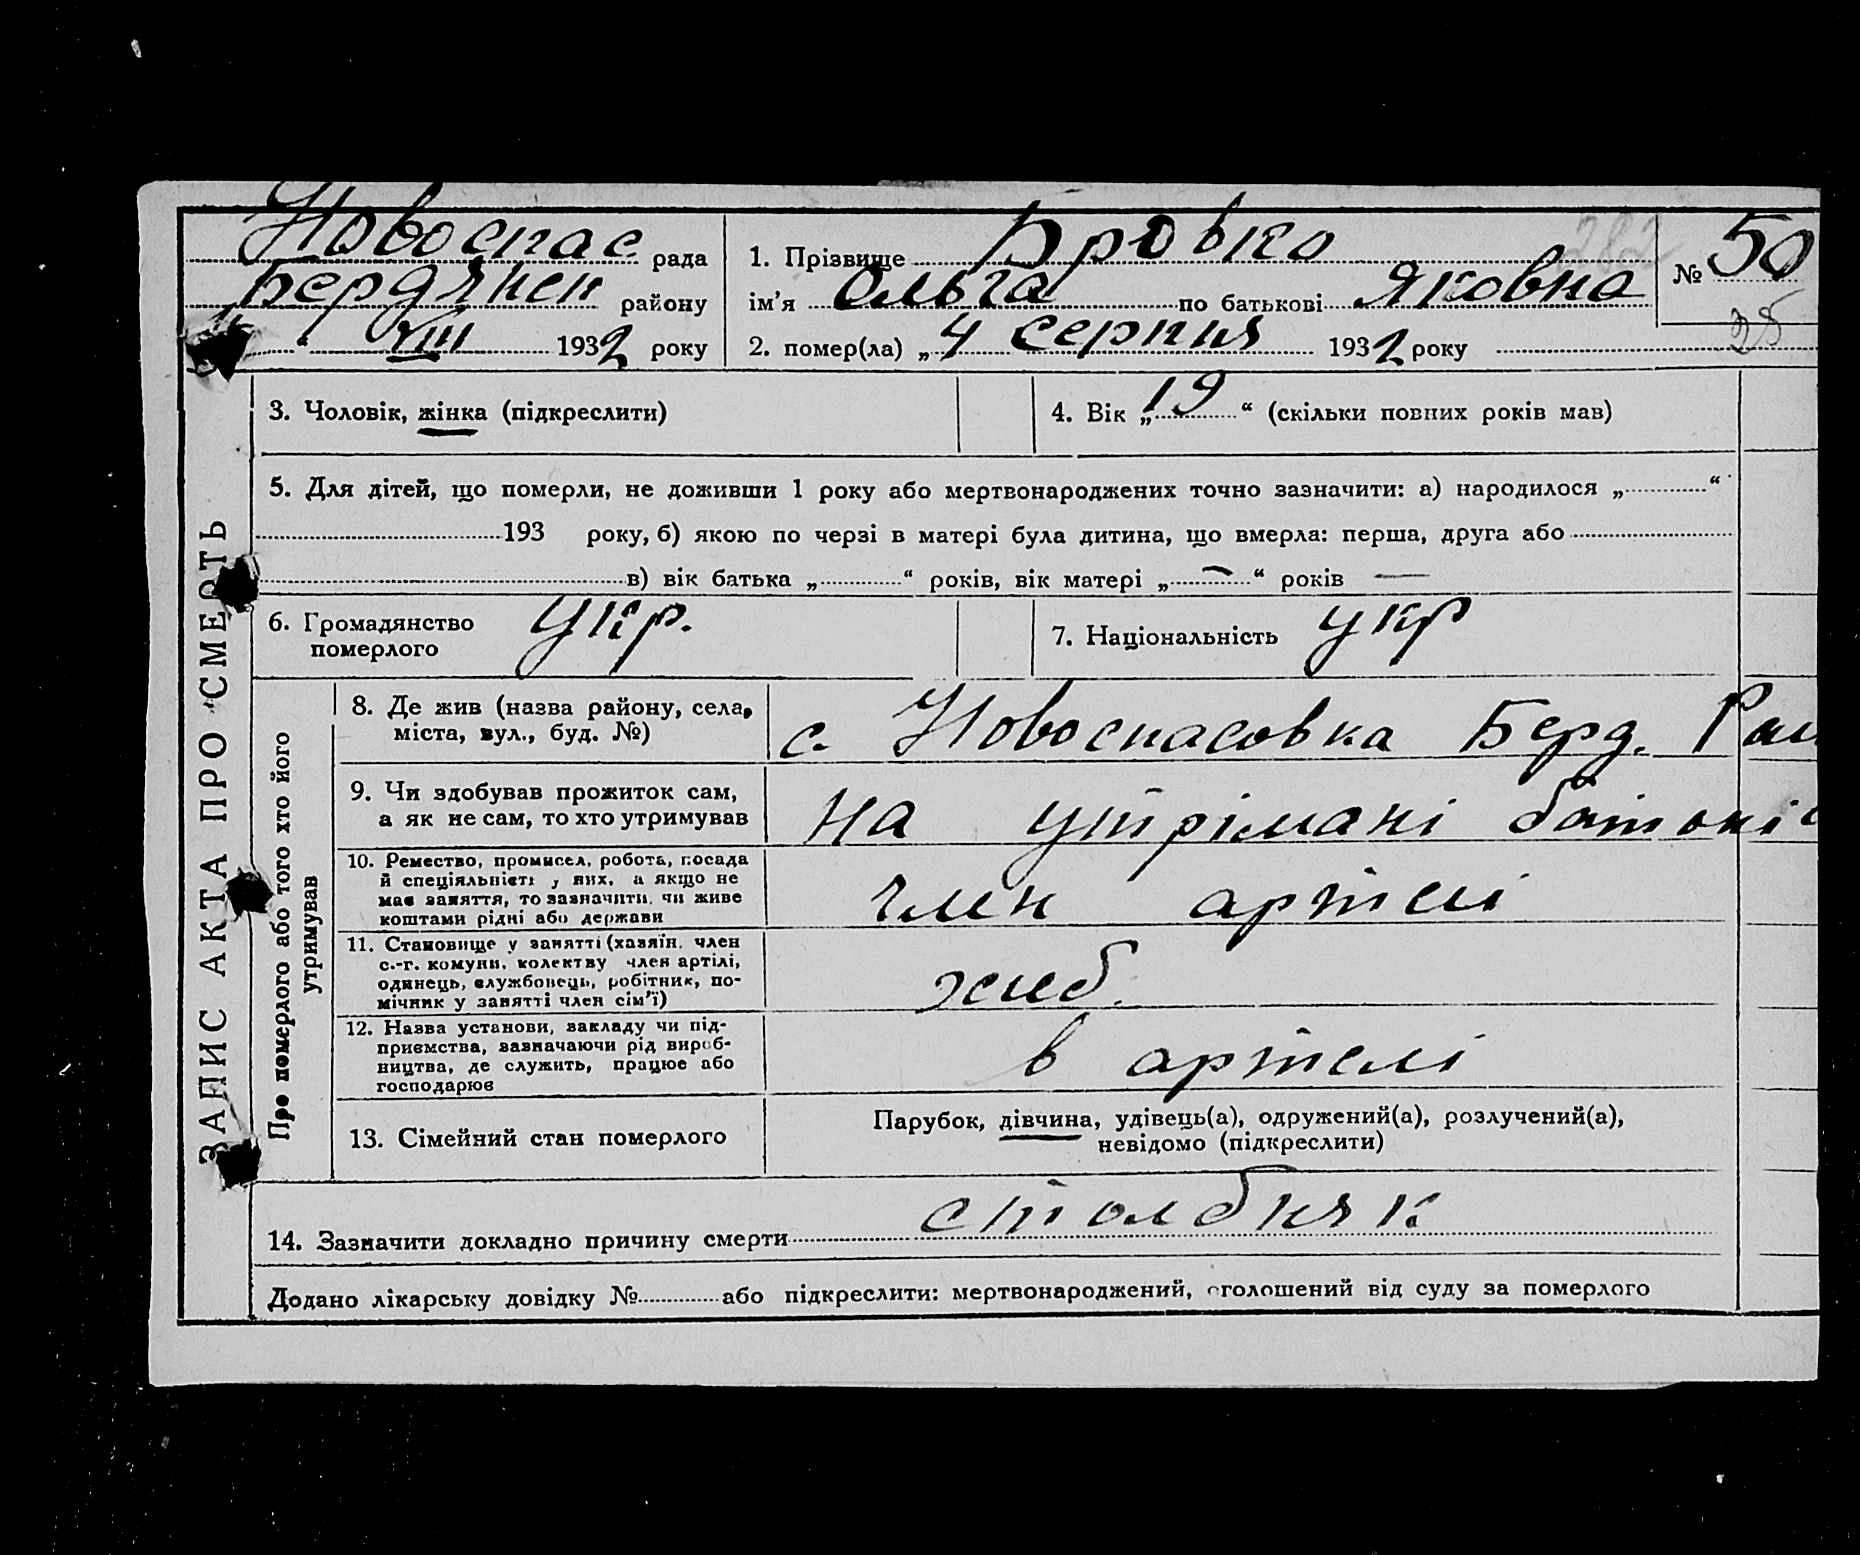 Новоспас. рада
Бердянськ району
VIII 1932 року
1. Прізвище Бровко
ім’я Ольга по батькові Яковна
2. помер(ла) „ 4 серпня 1932 року
№ 50
28
ЗАПИС АКТА ПРО СМЕРТЬ
3. Чоловік, жінка (підкреслити)
4. Вік „ 19 “ (скільки повних років мав)
5. Для дітей, що померли, не доживши 1 року або мертвонароджених точно зазначити: а) народилося „ “
193 року, б) якою по черзі в матері була дитина, що вмерла: перша, друга або
в) вік батька „ “ років, вік матері „ — “ років —
6. Громадянство
померлого укр.
7. Національність укр
Про померлого або того хто його
утримував
8. Де жив (назва району, села,
міста, вул., буд. №)
с. Новоспасовка Берд. Рай
9. Чи здобував прожиток сам,
а як не сам, то хто утримував
на утрімані батьків
10. Ремество, промисел, робота, посада
й спеціяльність у них, а якщо не
має заняття, то зазначити, чи живе
коштами рідні або держави
член артелі
11. Становище у занятті (хазяїн, член
с.-г. комуни, колективу член артілі,
одинець, службовець, робітник, по-
мічник у занятті член сім’ї)
12. Назва установи, закладу чи під-
приємства, зазначаючи рід вироб-
ництва, де служить, працює або
господарює
в артелі
13. Сімейний стан померлого
Парубок, дівчина, удівець(а), одружений(а), розлучений(а),
невідомо (підкреслити)
14. Зазначити докладно причину смерти столбняк
Додано лікарську довідку № або підкреслити: мертвонароджений, оголошений від суду за померлого